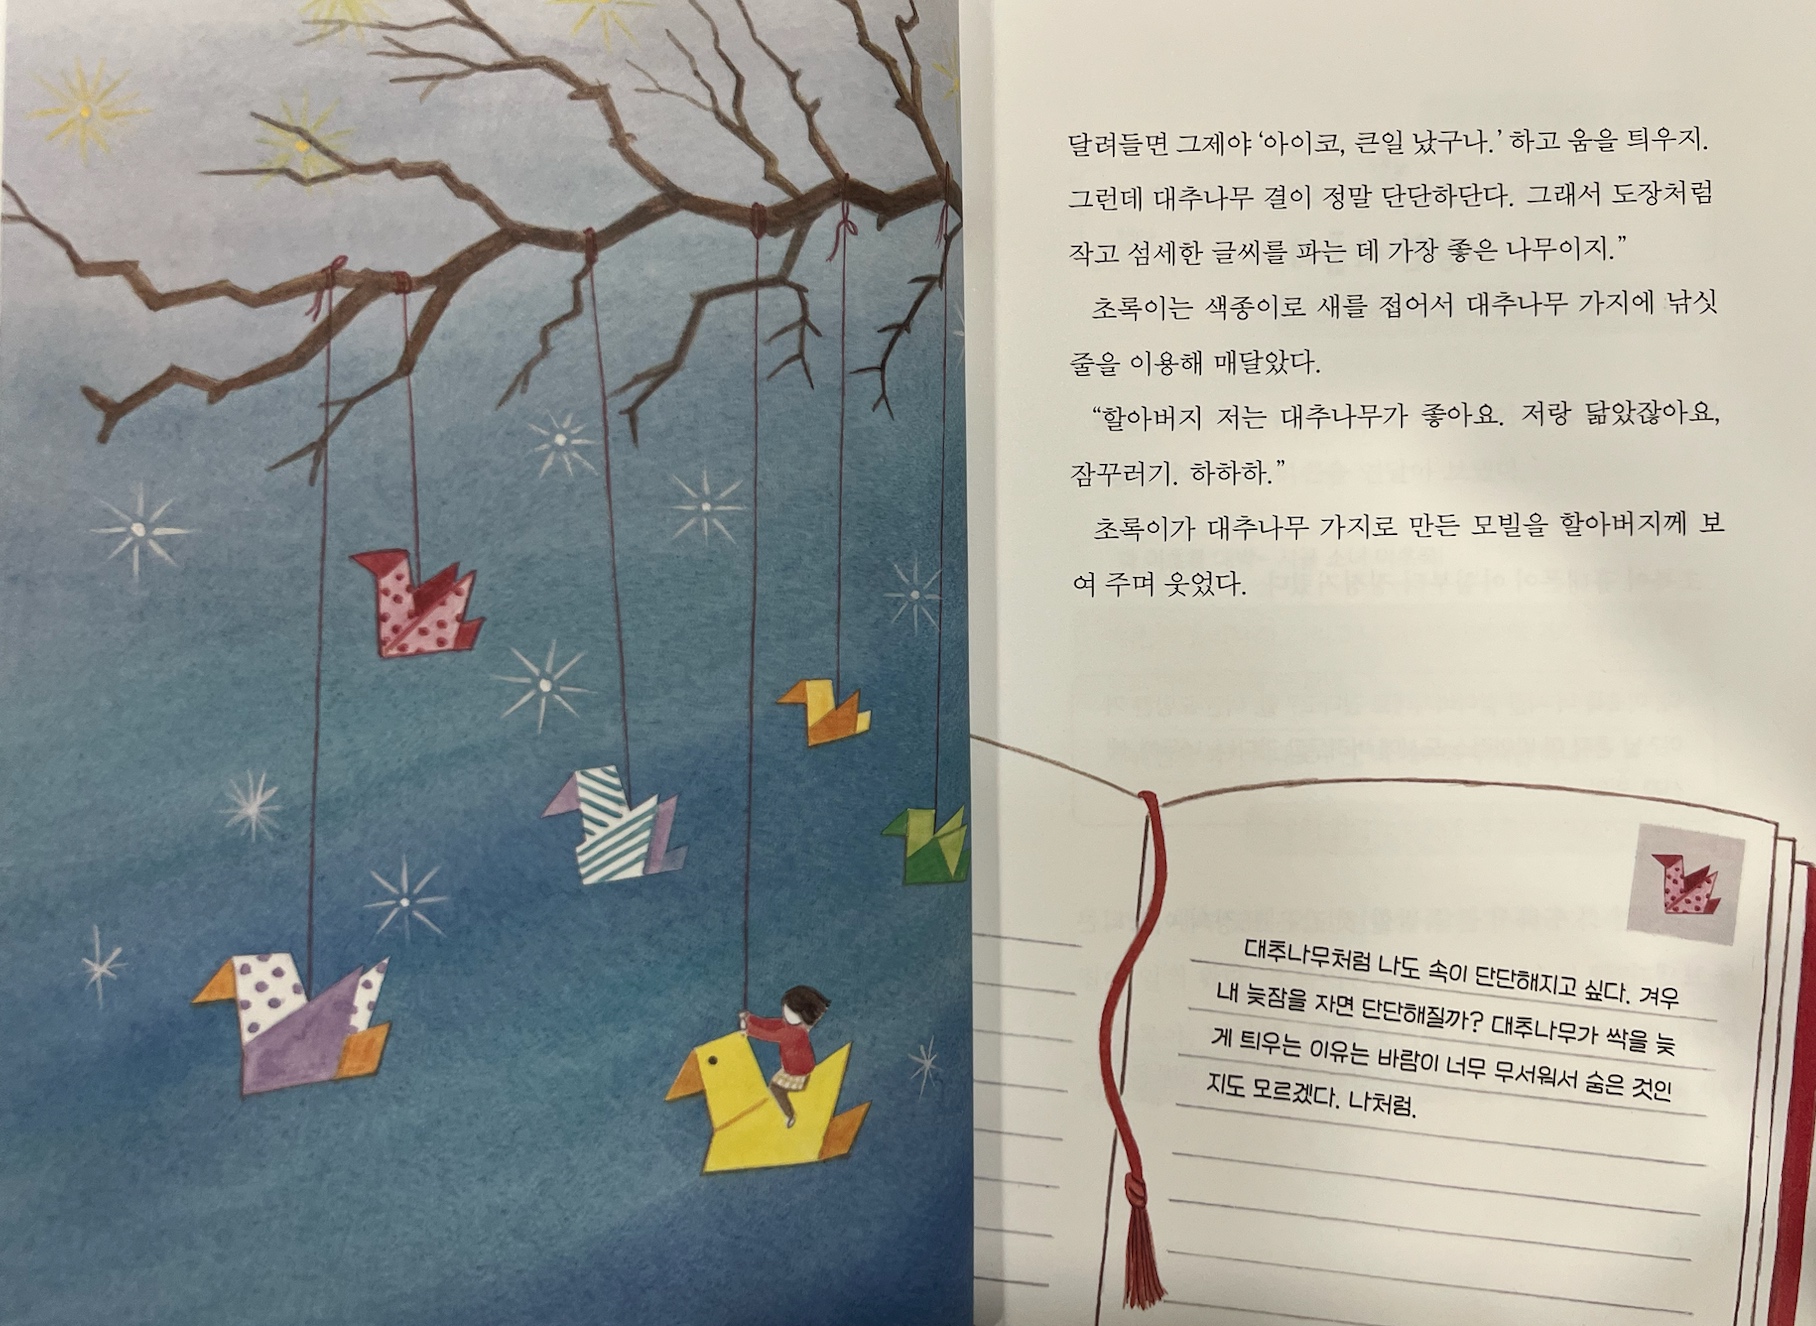 달려들면 그제야 ‘아이코, 큰일 났구나.’ 하고 움을 틔우지.
그런데 대추나무 결이 정말 단단하단다. 그래서 도장처럼
작고 섬세한 글씨를 파는 데 가장 좋은 나무이지.”
초록이는 색종이로 새를 접어서 대추나무 가지에 낚싯
줄을 이용해 매달았다.
“할아버지 저는 대추나무가 좋아요. 저랑 닮았잖아요,
잠꾸러기. 하하하.”
초록이가 대추나무 가지로 만든 모빌을 할아버지께 보
여 주며 웃었다.
대추나무처럼 나도 속이 단단해지고 싶다. 겨우
내 늦잠을 자면 단단해질까? 대추나무가 싹을 늦
게 틔우는 이유는 바람이 너무 무서워서 숨은 것인
지도 모르겠다. 나처럼.